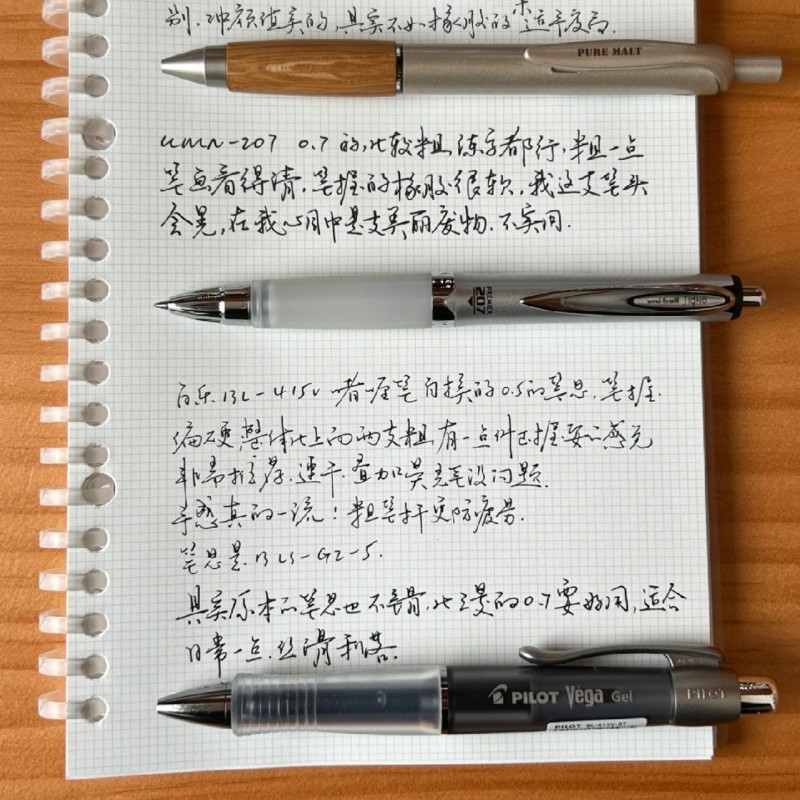 别,冲颜值买的,其实不如橡胶的舒适度高.
PURE MALT
umn-207 0.7的,比较粗,练字都行,粗一点
笔画看得清,笔握的橡胶很软,我这支笔头
会晃,在我心目中是支美丽废物.不实用.
PREMIER 207
uni-ball Signo
百乐BL-415V 啫喱笔自换的0.5的笔芯,笔握
偏硬,整体比上面两支粗,有一点
非常推荐,速干.叠加荧光笔没问题.
手感真的一流!粗笔杆更防疲劳.
笔芯是BLS-G2-5.
其实原本的笔芯也不错,比三菱的0.7要好用,适合
日常一点.丝滑利落.
PILOT Vega Gel
PILOT
PILOT BL-415V-BT